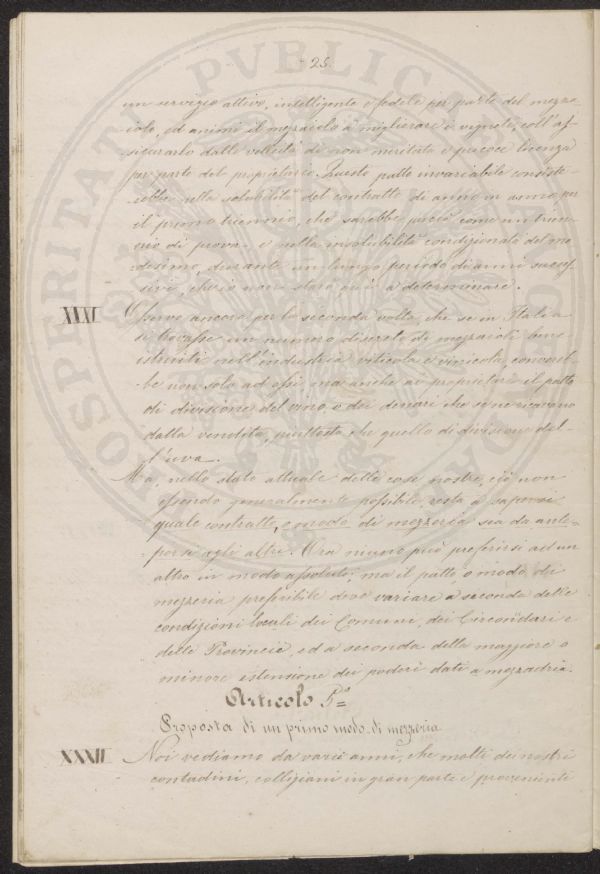 25.
un servizio attivo, intelligente e fedele per parte del mezza=
iolo, ed animi il mezzaiolo a migliorare i vigneti, coll'as=
sicurarlo dalle velleità di non meritata e precoce licenza
per parte del proprietario. Questo patto invariabile consiste=
rebbe nella volubilità del contratto di anno in anno, per
il primo triennio, che sarebbe perciò come un trien=
nio di prova e nella insolubilità condizionata del me=
desimo, durante un lungo periodo di anni succes=
sivi, che io non starò qui a determinare.
XXXI. Osservo ancora per la seconda volta, che se in Italia
si trovasse un numero discreto di mezzaioli bene
istruiti nell'industria viticola e vinicola, converreb=
be non solo ad essi ma anche ai proprietari il patto
di divisione del vino o dei denari che se ne ricavano
dalla vendita, piuttosto che quello di divisione del=
l'uva.
Ma, nello stato attuale delle cose nostre, ciò non
essendo generalmente possibile resta a sapersi
quale contratto, o modo di mezzeria sia da ante=
porsi agli altri. Ora niuno può preferirsi ad un
altro in modo assoluto; ma il patto, o modo di
mezzeria preferibile deve variare a seconda delle
condizioni locali dei Comuni, dei Circondari e
delle Provincie, ed a seconda della maggiore o
minore estensione dei poderi dati a mezzadria.
Articolo 5°
Proposta di un primo modo di mezzeria
XXXII Noi vediamo da varii anni, che molti dei nostri
contadini, colligiani in gran parte e provenienti
PROSPERITATI PVBLICAE